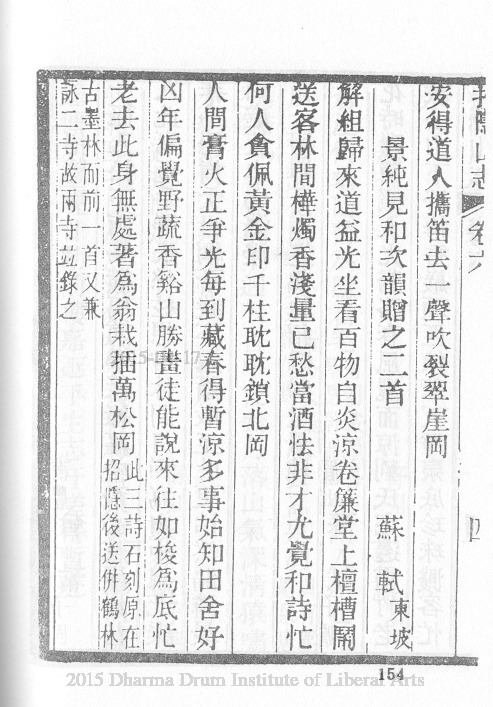 招隱山志 卷六 四
安得道人攜笛去一聲吹裂翠崖岡
景純見和次韻贈之二首 蘇軾東坡
解組歸來道益光坐看百物自炎涼卷簾堂上檀槽鬧
送客林間樺燭香淺量已愁當酒怯非才尤覺和詩忙
何人貪佩黃金印千柱耽耽鎖北岡
人間膏火正爭光每到藏春得暫涼多事始知田舍好
凶年偏覺野蔬香谿山勝畫徒能說來往如梭為底忙
老去此身無處著為翁栽插萬松岡 此三詩石刻原在
招隱後送併鶴林
古墨林而前一首又兼
詠二寺故兩寺並錄之
154
2015 Dharma Drum Institute of Liberal Arts